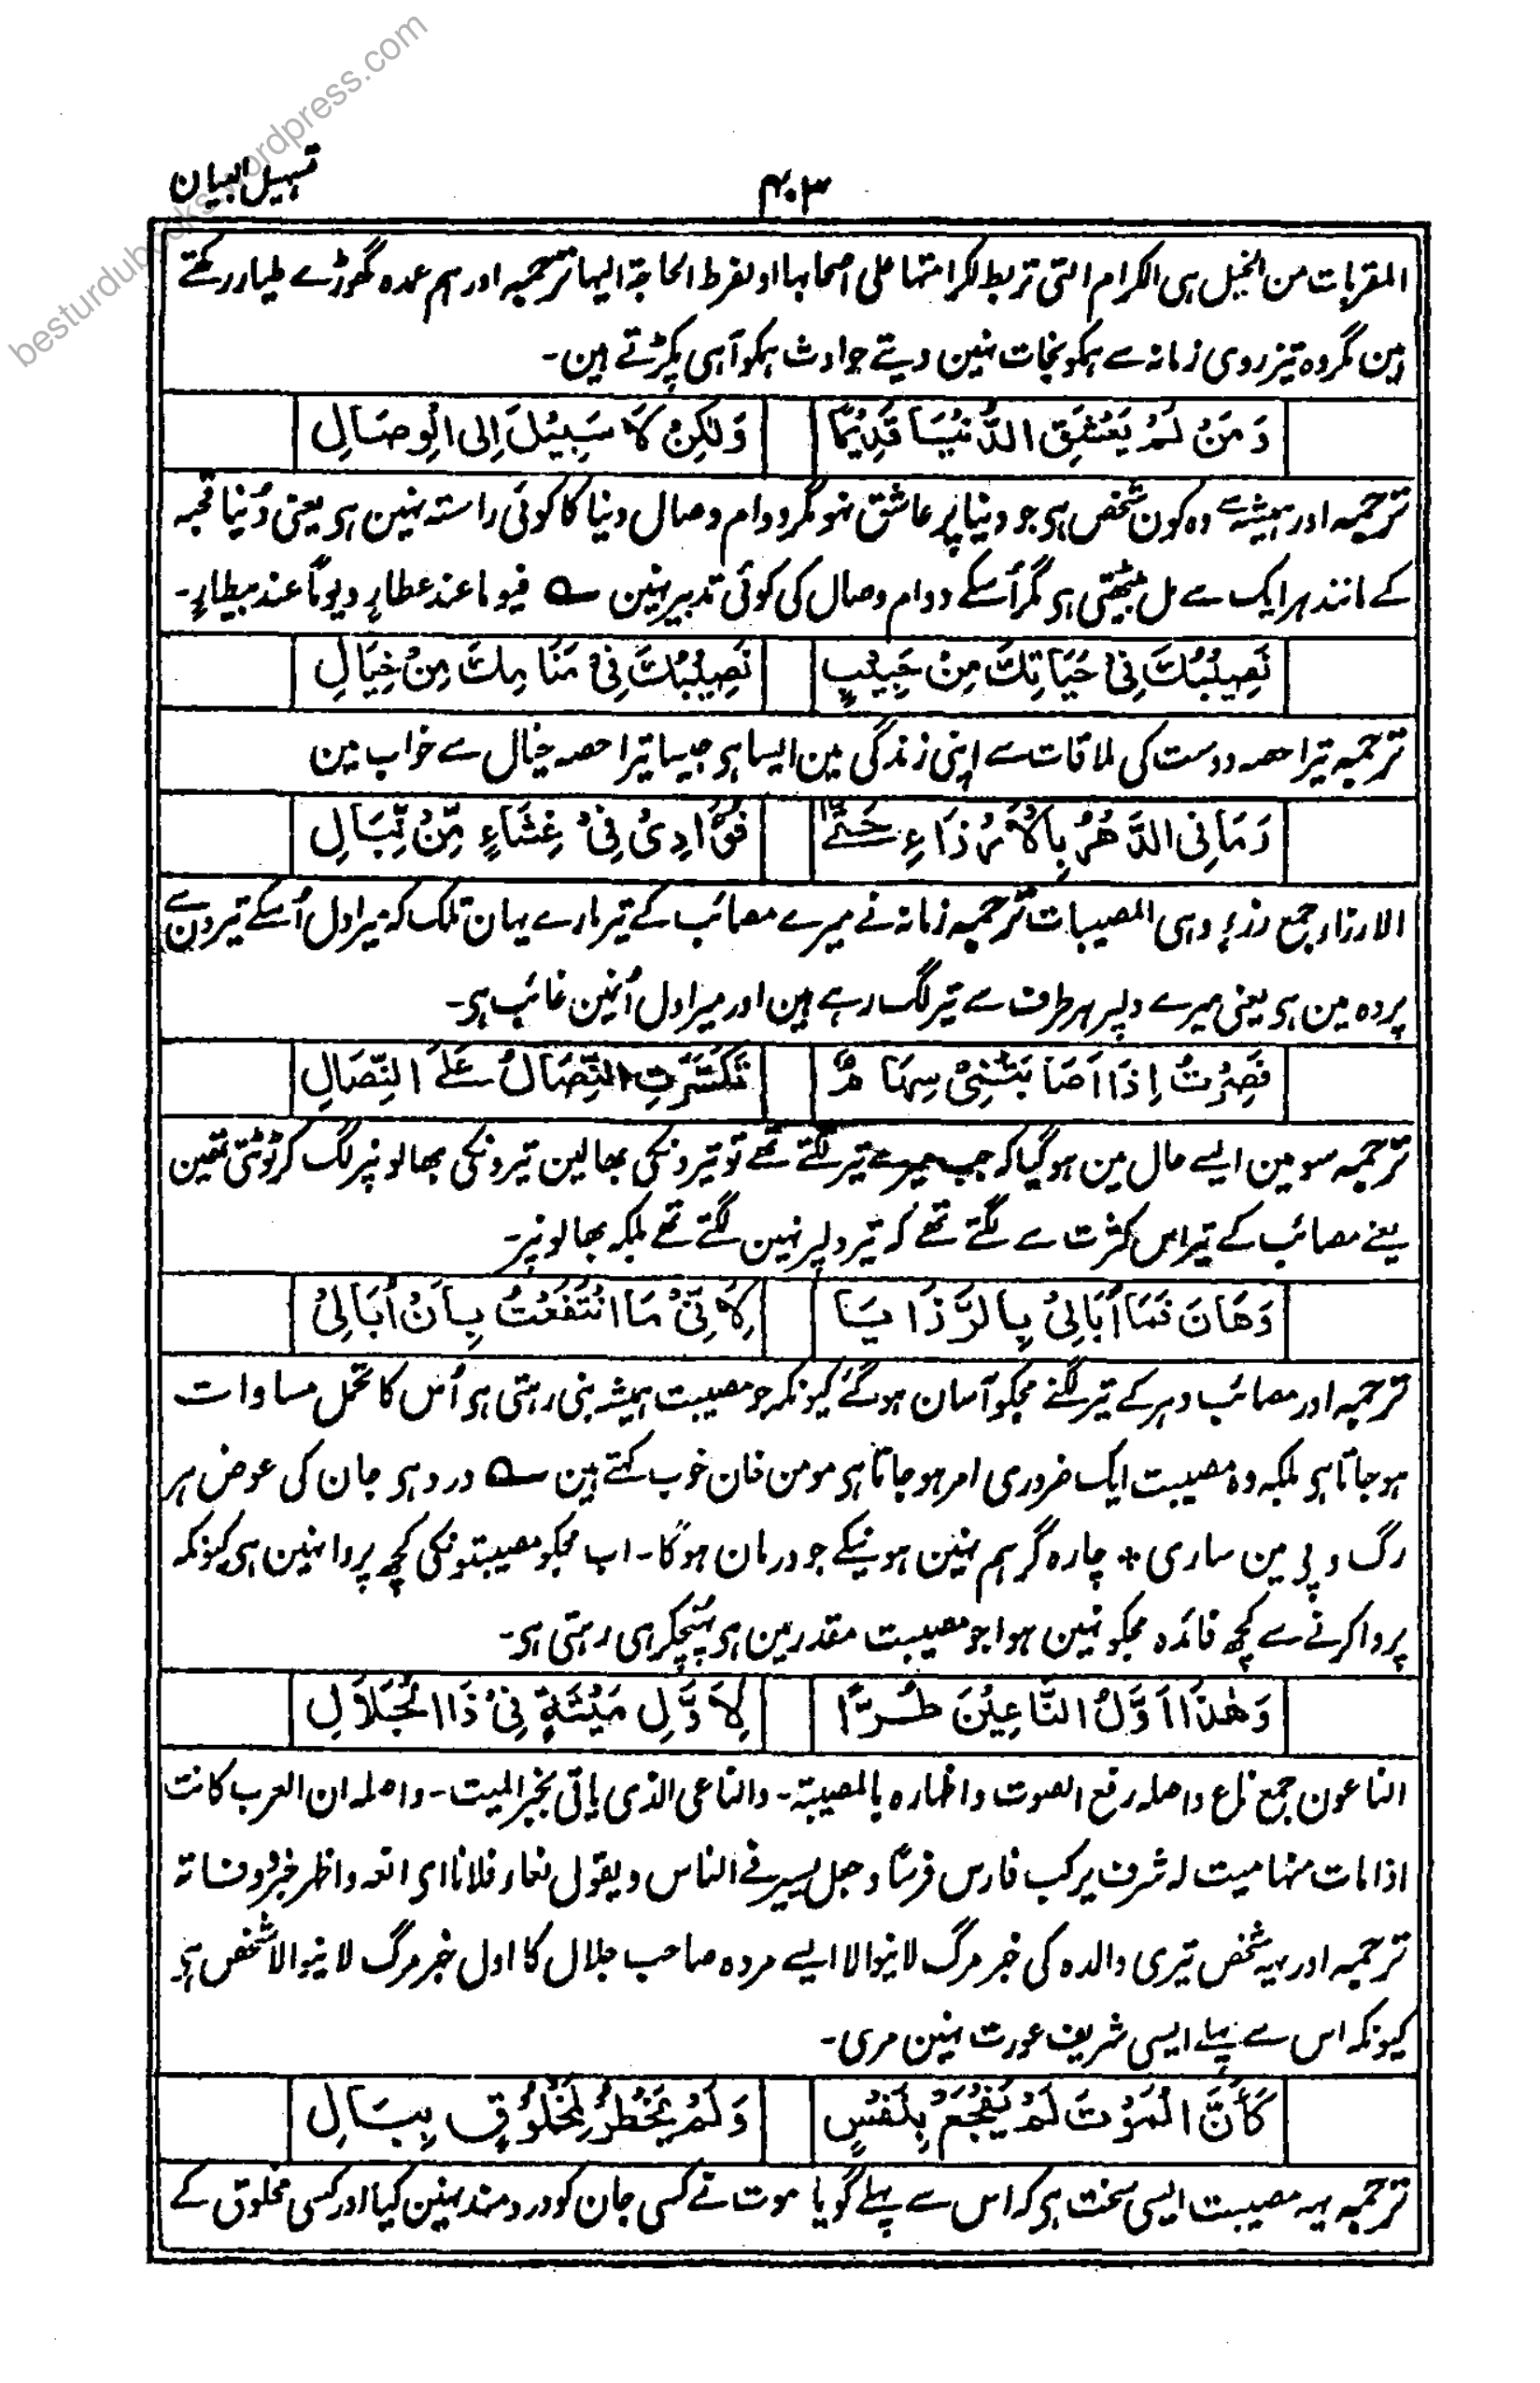 besturdubooks.wordpress.com
تسہیل البیان
۴۰۳
المقربات من الخیل ہی الکرام التی تربط لکرامتہا علی اصحابہا او لفرط الحاجۃ الیہا ترجمہ اور ہم عمدہ گھوڑے طیار رکھتے
ہین مگر وہ تیز روی زمانہ سے ہمکو نجات نہین دیتے حوادث ہمکو آہی پکڑتے ہین۔
وَمَنْ لَمْ يَعْشَقِ الدُّنْيَا قَدِيْمًا وَلٰكِنْ لَا سَبِيْلَ اِلَى الْوِصَالِ
ترجمہ اور ہمیشہ سے وہ کون شخص ہی جو دنیا پر عاشق نہو مگر دوام وصال دنیا کا کوئی راستہ نہین ہی یعنی دُنیا قحبہ
کے مانند ہر ایک سے مل بیٹھتی ہی مگر اُسکے دوام وصال کی کوئی تدبیر نہین ؎ فیوما عند عطارٍ ویومًا عند بیطارٍ۔
نَصِيْبُكَ فِيْ حَيَاتِكَ مِنْ حَبِيْبٍ نَصِيْبُكَ فِيْ مَنَامِكَ مِنْ خِيَالِ
ترجمہ تیرا حصہ دوست کی ملاقات سے اپنی زندگی مین ایسا ہی جیسا تیرا حصہ خیال سے خواب مین
رَمَانِى الدَّهْرُ بِالْاَرْزَاءِ حَتّٰى فُؤَادِىْ فِىْ غِشَاءٍ مِّنْ نِّبَالِ
الارزاء جمع رزء وہی المصیبات ترجمہ زمانہ نے میرے مصائب کے تیر مارے یہان تلک کہ میرا دل اُسکے تیرون سے
پردہ مین ہی یعنی میرے دلپر ہر طرف سے تیر لگ رہے ہین اور میرا دل اُنمین غائب ہی۔
فَصِرْتُ اِذَا اَصَابَتْنِىْ سِهَامٌ تَكَسَّرَتِ النِّصَالُ عَلَى النِّصَالِ
ترجمہ سو مین ایسے حال مین ہو گیا کہ جب میرے تیر لگتے تھے تو تیرونکی بھالین تیرونکی بھالونپر لگ کر ٹوٹتی تھین
یعنے مصائب کے تیر اس کثرت سے لگتے تھے کہ تیر دلپر نہین لگتے تھے بلکہ بھالونپر۔
وَهَانَ فَمَا اُبَالِىْ بِالرَّزَايَا لِاَنِّىْ مَا انْتَفَعْتُ بِاَنْ اُبَالِىْ
ترجمہ اور مصائب دہر کے تیر لگنے مجکو آسان ہو گئے کیونکہ جو مصیبت ہمیشہ بنی رہتی ہی اُس کا تحمل مساوات
ہو جاتا ہی بلکہ وہ مصیبت ایک ضروری امر ہو جاتا ہی مومن خان خوب کہتے ہین ؎ درد ہی جان کی عوض ہر
رگ و پی مین ساری * چارہ گر ہم نہین ہونیکے جو درمان ہو گا۔ اب مجکو مصیبتونکی کچھ پروا نہین ہی کیونکہ
پروا کرنے سے کچھ فائدہ مجکو نہین ہوا جو مصیبت مقدر مین ہی پہنچکر ہی رہتی ہی۔
وَهٰذَا اَوَّلُ النَّاعِيْنَ طُرًّا لِاَوَّلِ مَيْتَةٍ فِىْ ذَا الْجَلَالِ
الناعون جمع ناع واصلہ رفع الصوت واظہارہ بالمصیبۃ۔ والناعی الذی یاتی بخبر المیت۔ واصلہ ان العرب کانت
اذا مات منہا میت لہ شرف یرکب فارس فرسًا وجعل یسیر فے الناس ویقول نعاء فلانا ای انعہ واظہر خبر وفاتہ
ترجمہ اور یہہ شخص تیری والدہ کی خبر مرگ لانیوالا ایسے مردہ صاحب جلال کا اول خبر مرگ لانیوالا شخص ہی
کیونکہ اس سے پہلے ایسی شریف عورت نہین مری۔
كَاَنَّ الْمَوْتَ لَمْ يَفْجَعْ بِنَفْسٍ وَلَمْ يَخْطُرْ لِمَخْلُوْقٍ بِبَالِ
ترجمہ یہہ مصیبت ایسی سخت ہی کہ اس سے پہلے گویا موت نے کسی جان کو دردمند نہین کیا اور کسی مخلوق کے